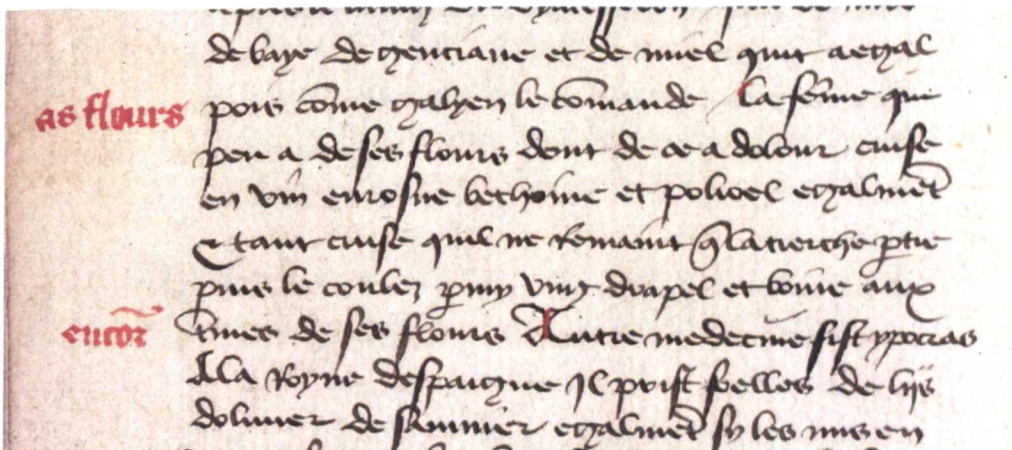 de baye de genciane et de miel qint aegal
as flours
pois cōme galyen le cōmande / La fēme que
peu a de ses flours dont de ce a dolour cuise
en vin eurosne bethoine et polioel egalmēt
& tant cuise quil ne remaint q̄ la tierche ꝑtie
puis le coulez ꝑmy vng drapel et boiue aux
encor̄
t̄mes de ses flours Autre medecine fist ypocras
A la Royne despaigne Il prist foelles de lijs
doliuier de sauinier egalmēt sy les mis en